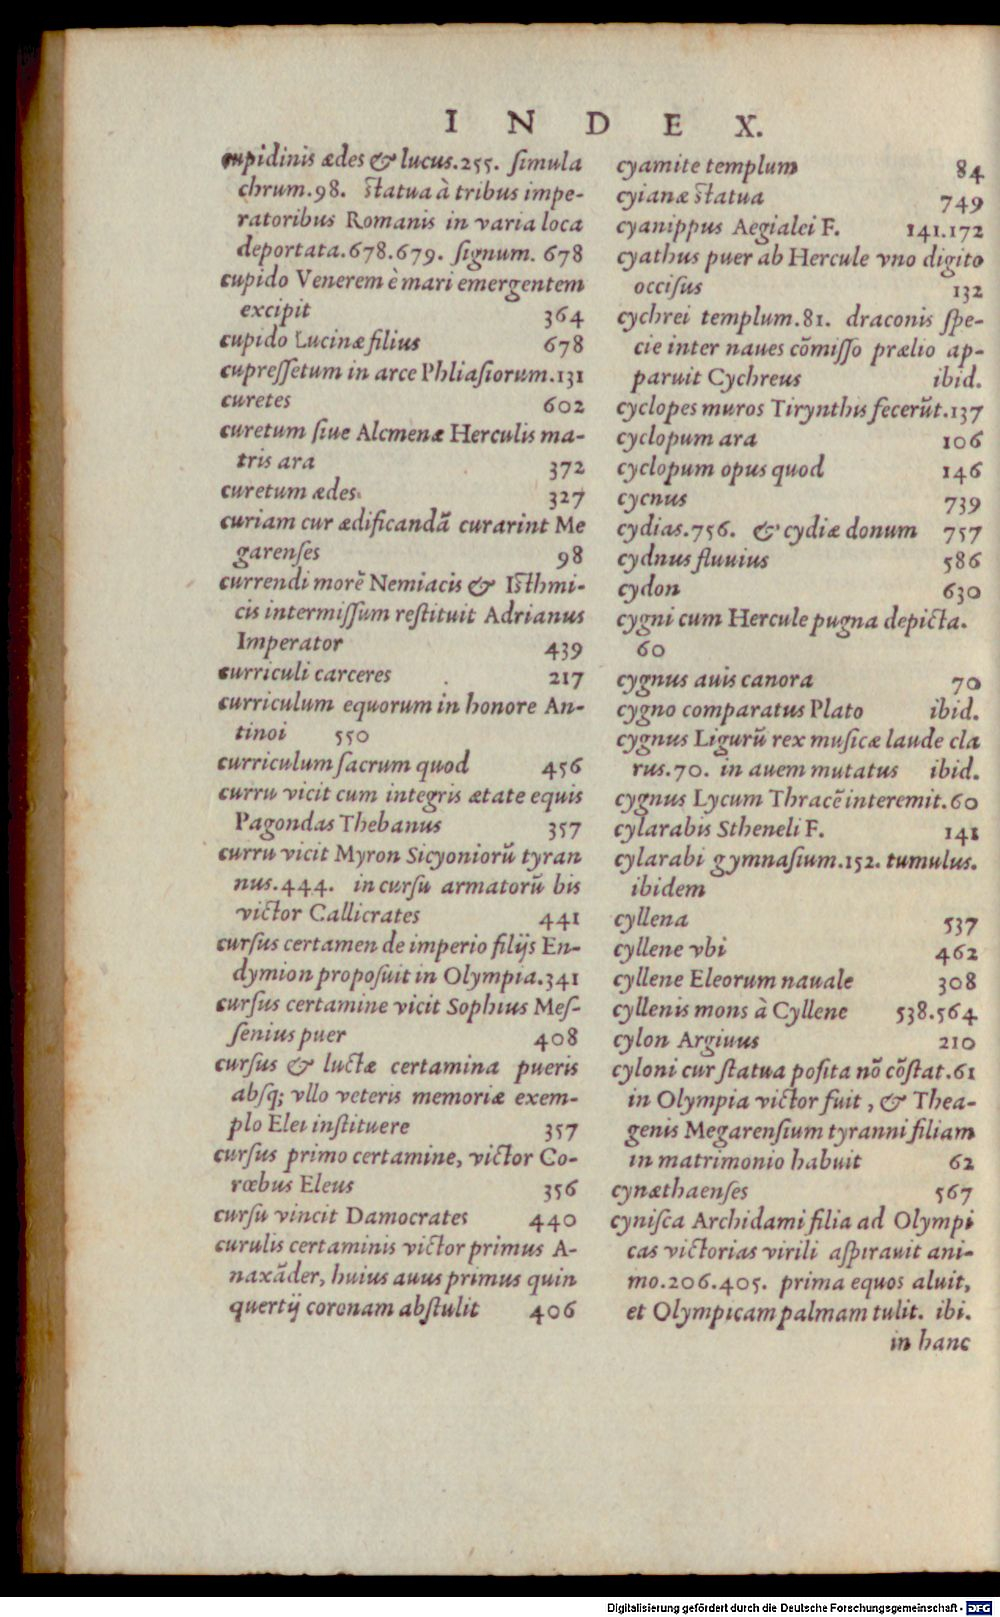 INDEX.
cupidinis ædes & lucus.255. ſimula
chrum.98. ſtatua à tribus impe-
ratoribus Romanis in varia loca
deportata.678.679. ſignum. 678
cupido Venerem è mari emergentem
excipit 364
cupido Lucinæ filius 678
cupreſſetum in arce Phliaſiorum.131
curetes 602
curetum ſiue Alcmenæ Herculis ma-
tris ara 372
curetum ædes. 327
curiam cur ædificandã curarint Me
garenſes 98
currendi morẽ Nemiacis & Iſthmi-
cis intermiſſum reſtituit Adrianus
Imperator 439
curriculi carceres 217
curriculum equorum in honore An-
tinoi 550
curriculum ſacrum quod 456
curru vicit cum integris ætate equis
Pagondas Thebanus 357
curru vicit Myron Sicyoniorũ tyran
nus.444. in curſu armatorũ bis
victor Callicrates 441
curſus certamen de imperio filijs En-
dymion propoſuit in Olympia.341
curſus certamine vicit Sophius Meſ-
ſenius puer 408
curſus & luctæ certamina pueris
abſq; vllo veteris memoriæ exem-
plo Elei inſtituere 357
curſus primo certamine, victor Co-
rœbus Eleus 356
curſu vincit Damocrates 440
curulis certaminis victor primus A-
naxãder, huius auus primus quin
quertij coronam abſtulit 406
cyamite templum 84
cyianæ ſtatua 749
cyanippus Aegialei F. 141.172
cyathus puer ab Hercule vno digito
occiſus 132
cychrei templum.81. draconis ſpe-
cie inter naues cõmiſſo prælio ap-
paruit Cychreus ibid.
cyclopes muros Tirynthis fecerũt.137
cyclopum ara 106
cyclopum opus quod 146
cycnus 739
cydias.756. & cydiæ donum 757
cydnus fluuius 586
cydon 630
cygni cum Hercule pugna depicta.
60
cygnus auis canora 70
cygno comparatus Plato ibid.
cygnus Ligurũ rex muſicæ laude cla
rus.70. in auem mutatus ibid.
cygnus Lycum Thracẽ interemit.60
cylarabis Stheneli F. 141
cylarabi gymnaſium.152. tumulus.
ibidem
cyllena 537
cyllene vbi 462
cyllene Eleorum nauale 308
cyllenis mons à Cyllene 538.564
cylon Argiuus 210
cyloni cur ſtatua poſita nõ cõſtat.61
in Olympia victor fuit, & Thea-
genis Megarenſium tyranni filiam
in matrimonio habuit 62
cynæthaenſes 567
cyniſca Archidami filia ad Olympi
cas victorias virili aſpirauit ani-
mo.206.405. prima equos aluit,
et Olympicam palmam tulit. ibi.
in hanc
Digitalisierung gefördert durch die Deutsche Forschungsgemeinschaft - DFG